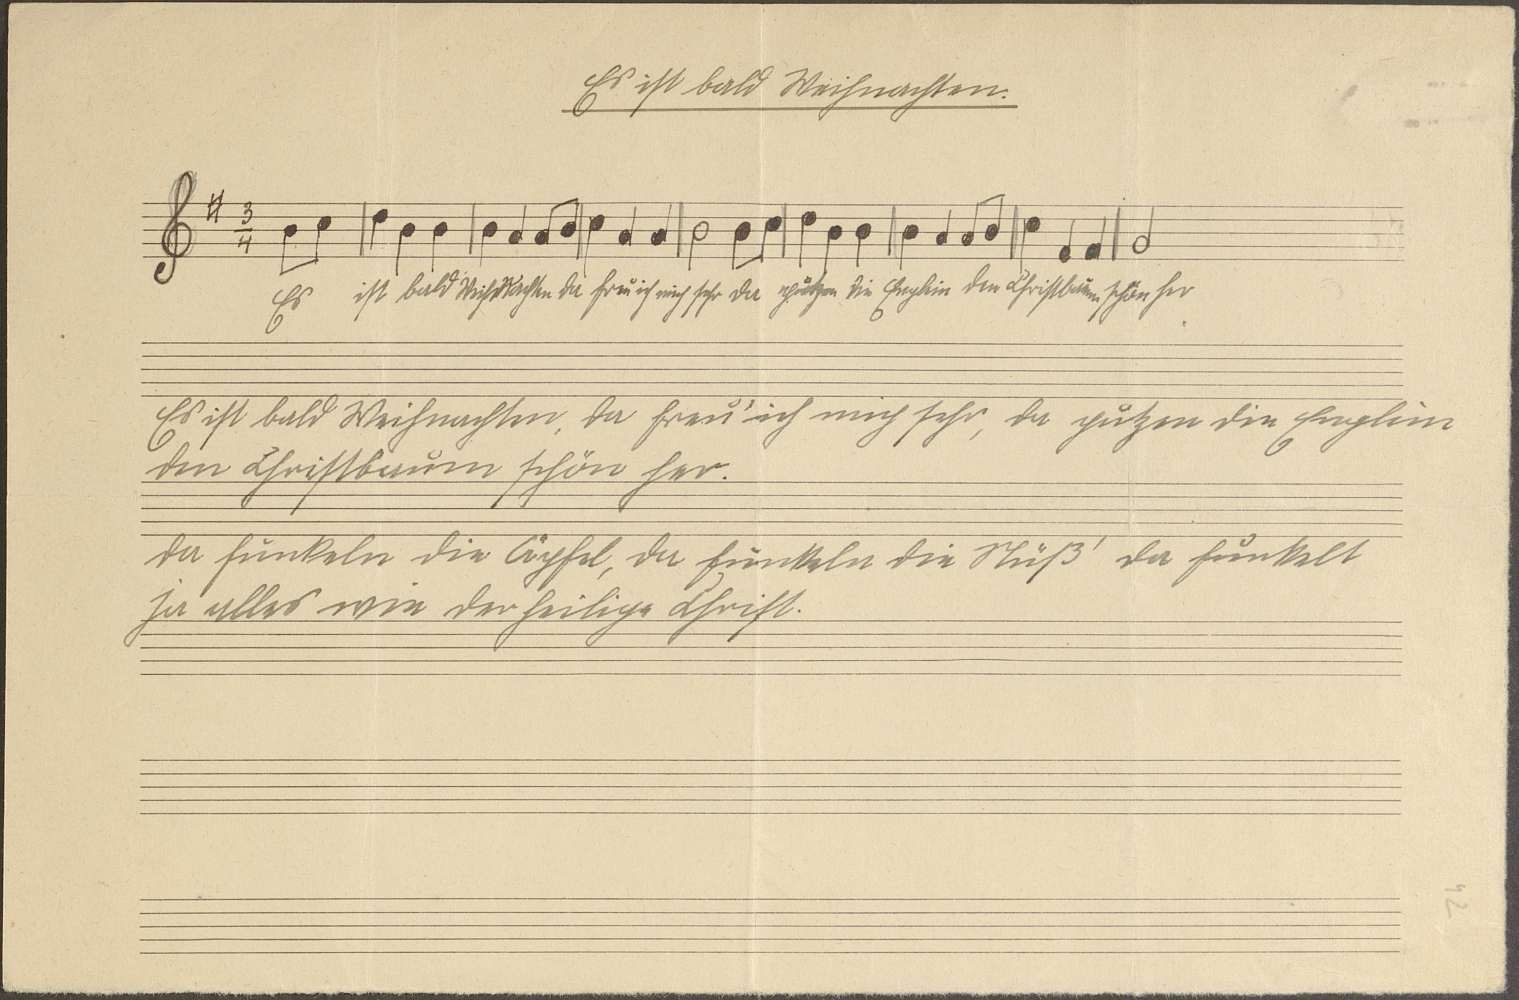 Es ist bald Weihnachten.
3
4
Es ist bald Weihnachten da freu ich mich sehr da putzen die Englein den Christbaum schön her
Es ist bald Weihnachten, da freu' ich mich sehr, da putzen die Englein
den Christbaum schön her.
da funkeln die Äpfel, da funkeln die Nüß' da funkelt
ja alles wie der heilige Christ.
42